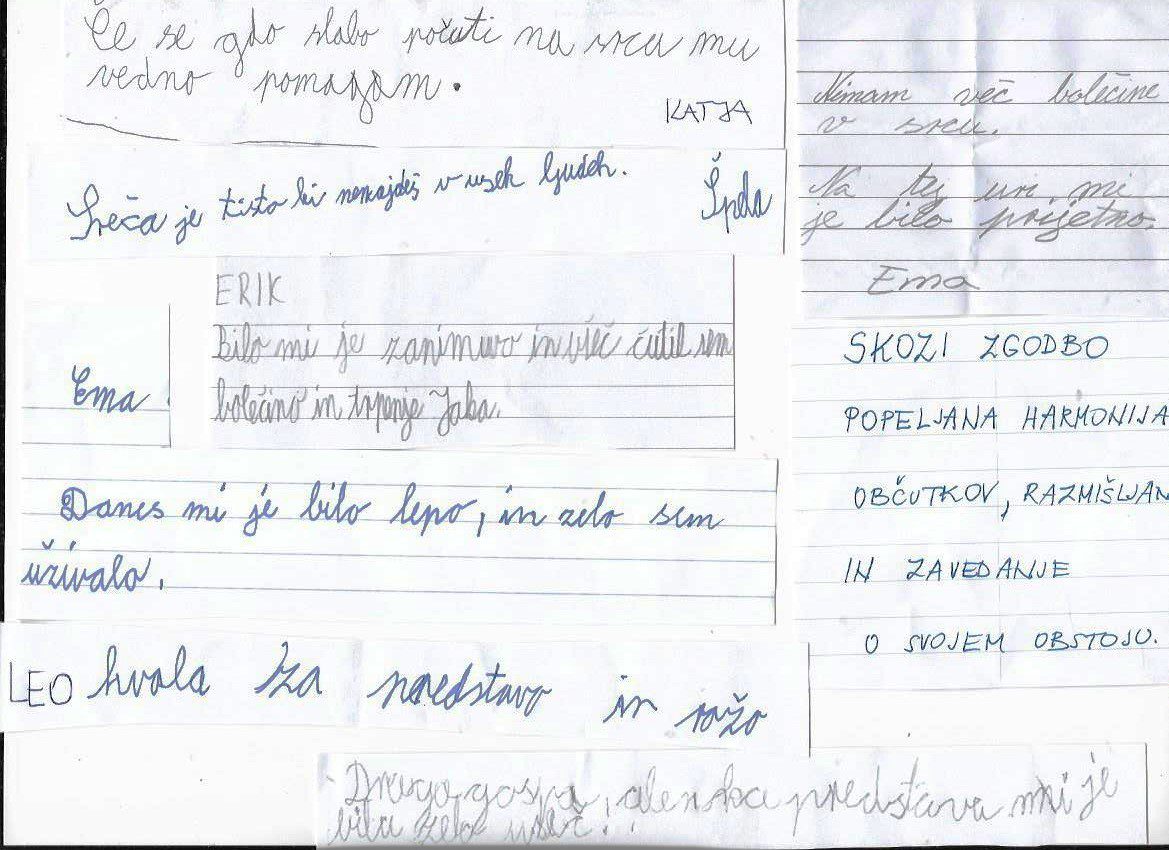 Če se gdo slabo počuti na srca mu
vedno pomagam.
KATJA
Sreča je tisto ki nenajdeš v usek ljudeh.
Špela
ERIK
Bilo mi je zanimuvo in všeč čutil sem
bolečino in trpenje Jaka.
Ema
Danes mi je bilo lepo, in zelo sem
uživala.
LEO hvala za predstavo in rožo
Draga gospa, alenska predstava mi je
bila zelo všeč!
Nimam več bolečine
v srcu.
Na tej uri mi
je bilo prijetno.
Ema
SKOZI ZGODBO
POPELJANA HARMONIJA
OBČUTKOV, RAZMIŠLJAN
IN ZAVEDANJE
O SVOJEM OBSTOJU.